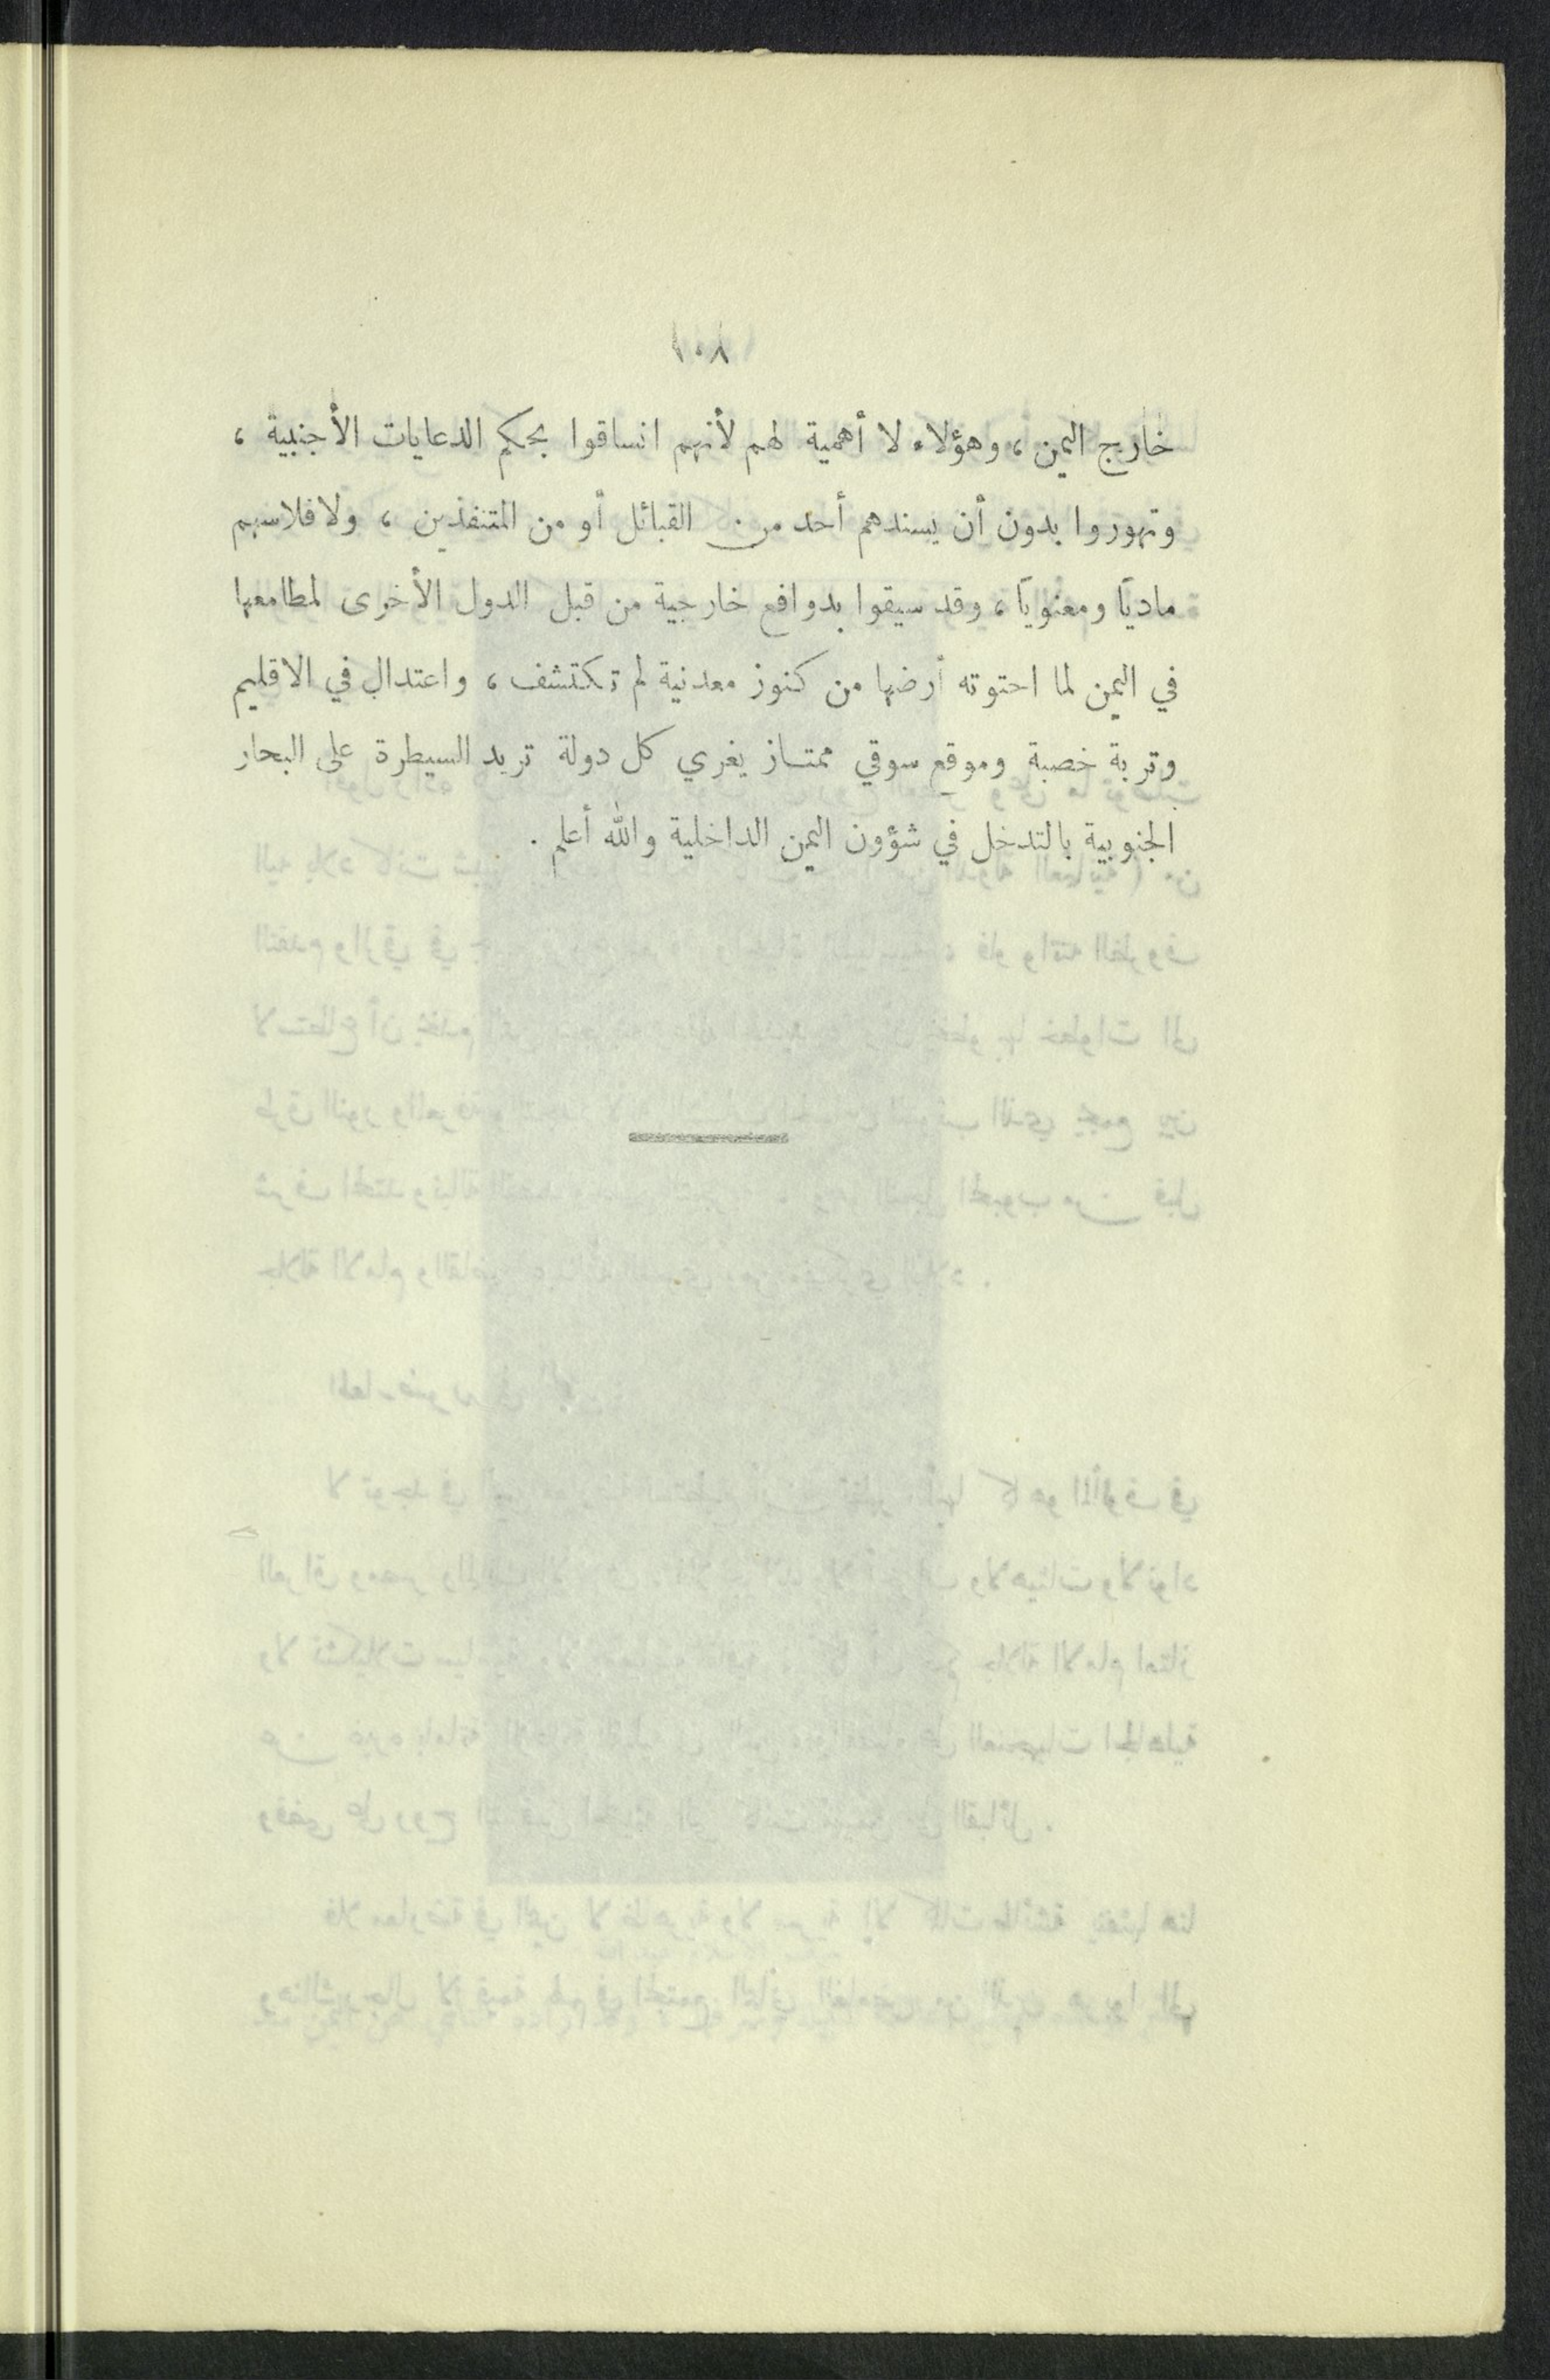 ١٠٨
خارج اليمن ، وهؤلاء لا أهمية لهم لأنهم انساقوا بحكم الدعايات الأجنبية ،
وتهوروا بدون أن يسندهم أحد من القبائل أو من المتنفذين ، ولافلاسهم
ماديآ ومعنويآ ، وقد سيقوا بدوافع خارجية من قبل الدول الأخرى لمطامعها
في اليمن لما احتوته أرضها من كنوز معدنية لم تكتشف ، واعتدال في الاقليم
وتربة خصبة وموقع سوقي ممتاز يغري كل دولة تريد السيطرة على البحار
الجنوبية بالتدخل في شؤون اليمن الداخلية والله أعلم .